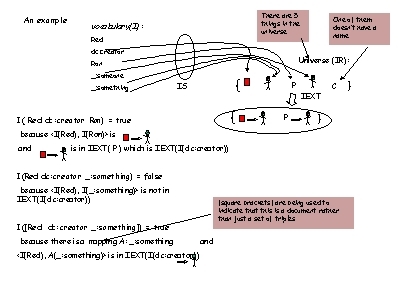 An example
vocabulary(I):
There are 3
things in the
universe
One of them
doesn't have a
name
Red
dc:creator
Ron
_:someone
_:something
IS
Universe (IR):
{ P C }
IEXT
{ P }
I( Red dc:creator Ron) = true
because <I(Red), I(Ron)> is
and is in IEXT( P ) which is IEXT(I(dc:creator))
I(Red dc:creator _:something) = false
because <I(Red), I(_:something)> is not in
IEXT(I(dc:creator))
[square brackets] are being used to
indicate that this is a document rather
than just a set of triples
I([Red dc:creator _:something]) = true
because there is a mapping A: _:something and
<I(Red), A(_:something)> is in IEXT(I(dc:creator))